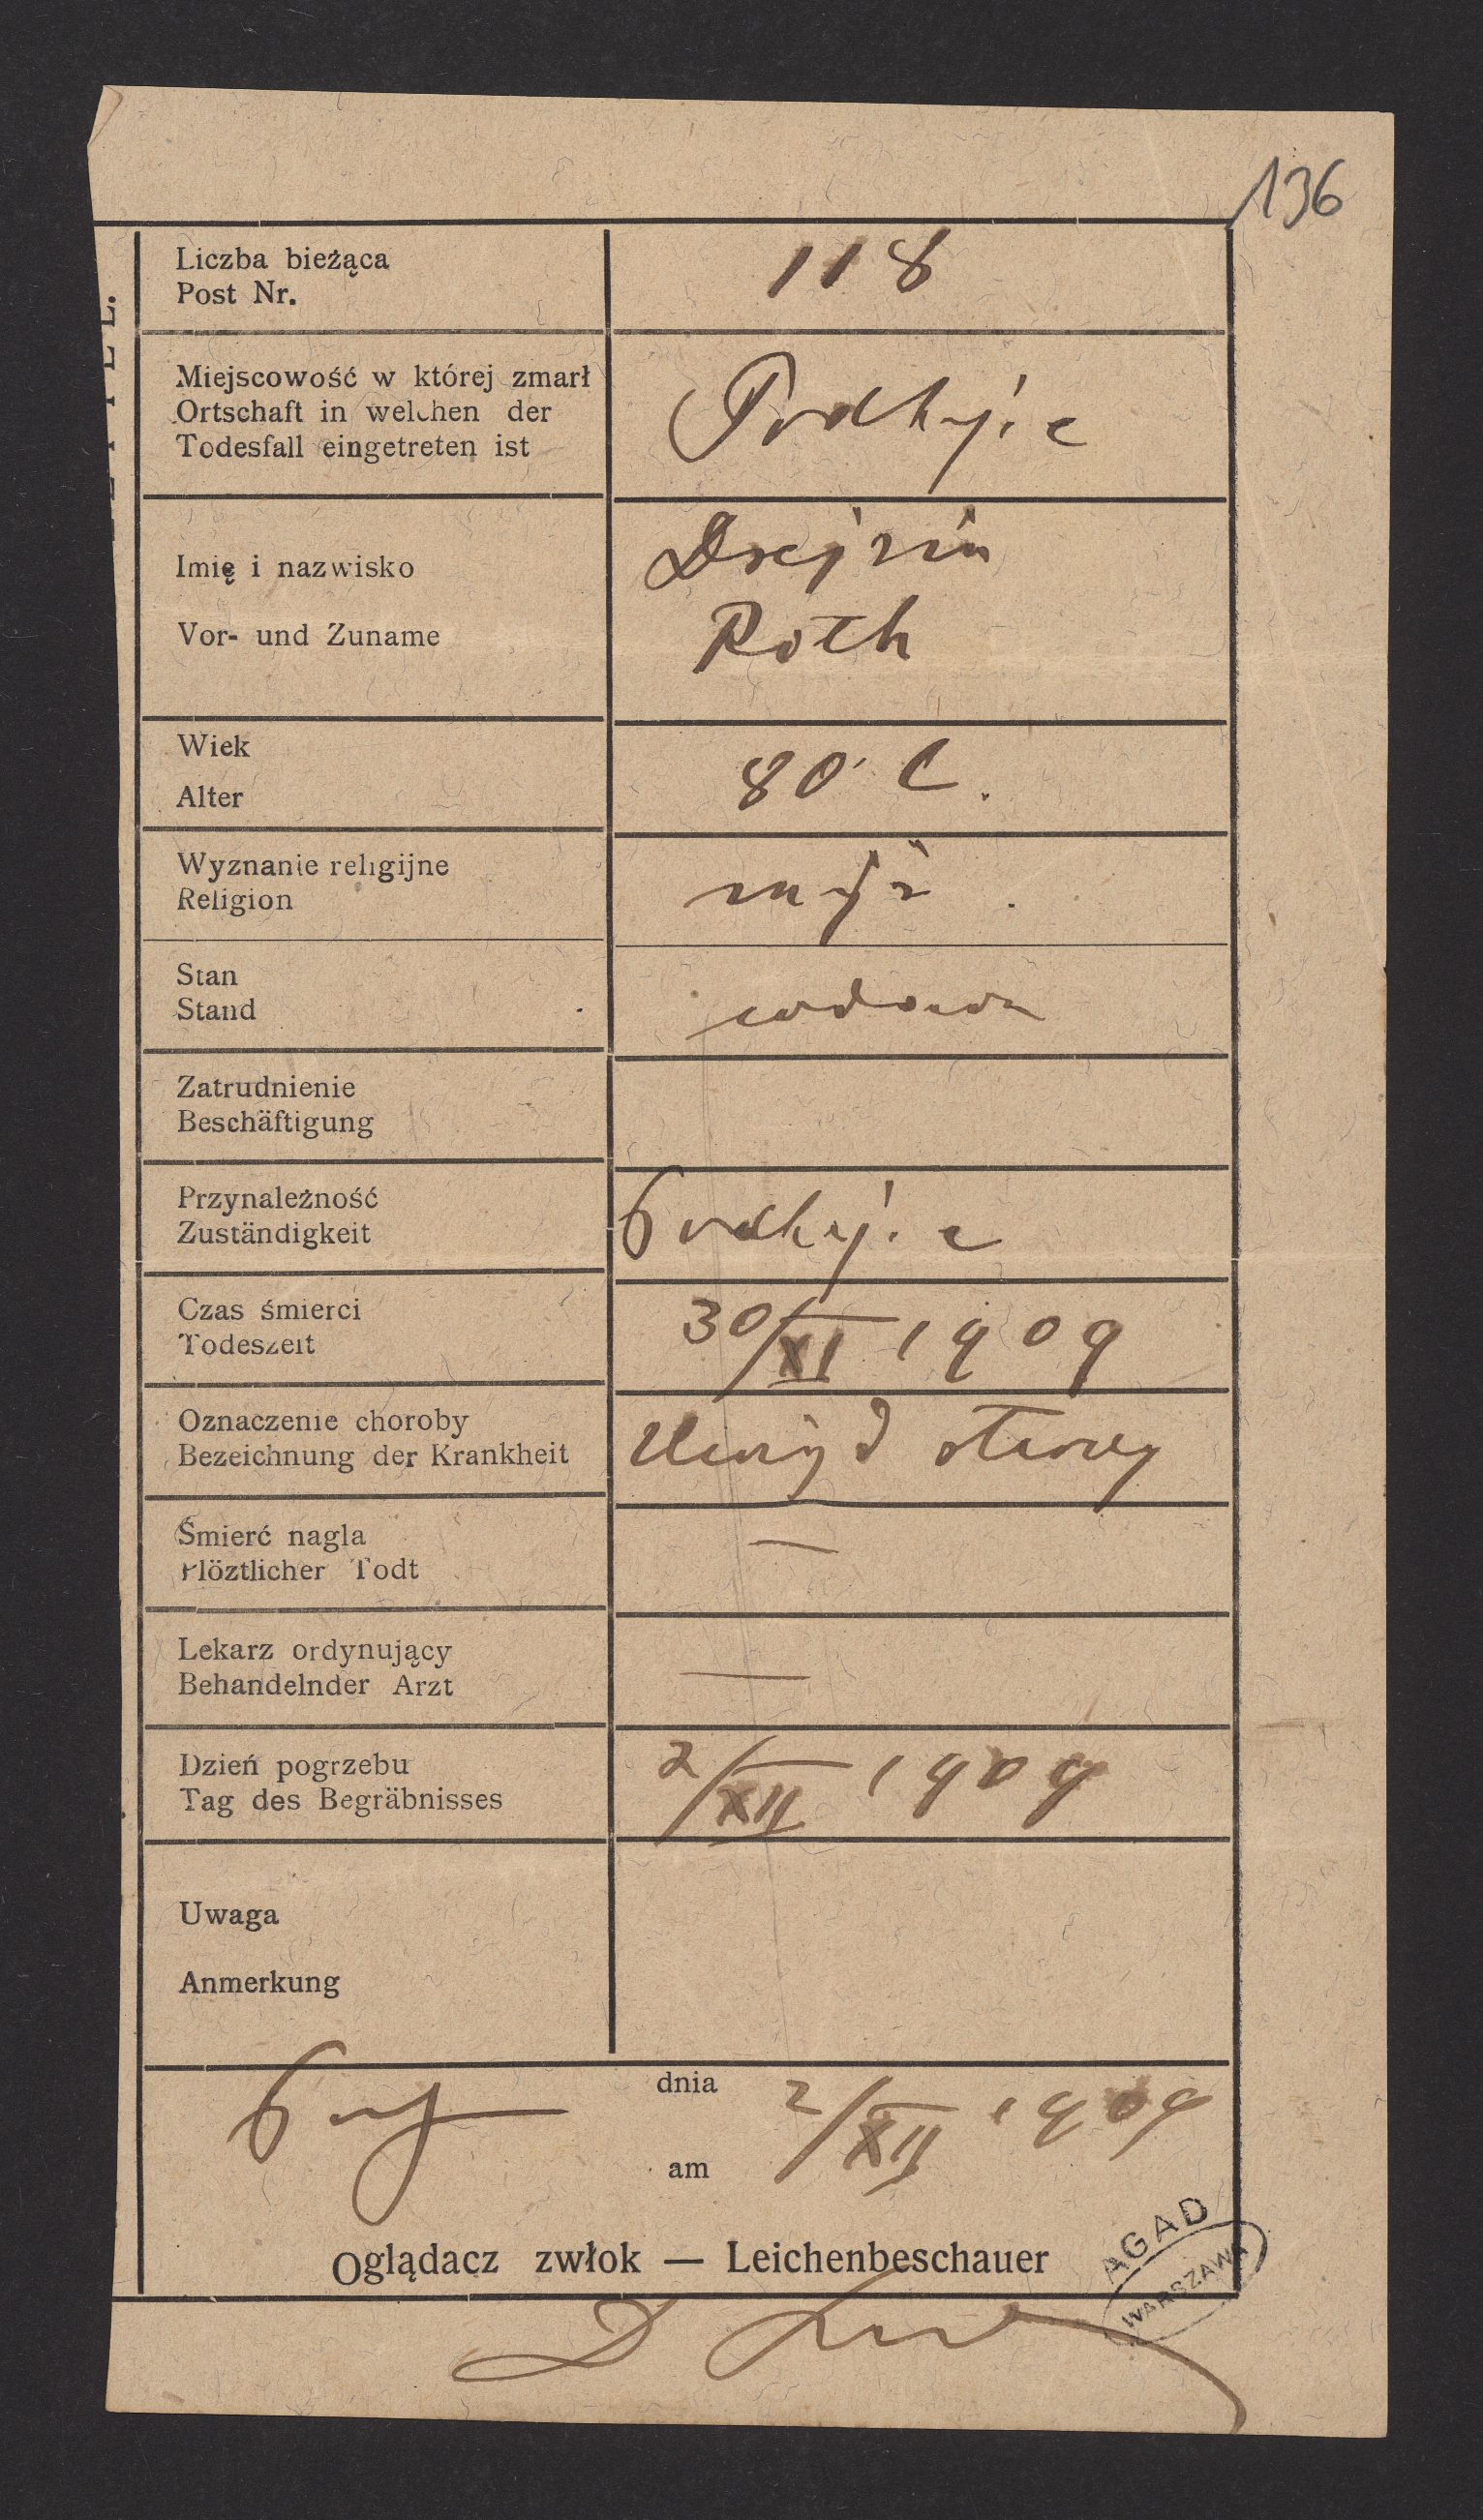 136
Liczba bieżąca
Post Nr.
118
Miejscowość w której zmarł
Ortschaft in welchen der
Todesfall eingetreten ist
Podhajce
Imię i nazwisko
Vor- und Zuname
Drejzin
Roth
Wiek
Alter
80 l.
Wyznanie religijne
Religion
mojż.
Stan
Stand
wdowa
Zatrudnienie
Beschäftigung
Przynależność
Zuständigkeit
Podhajce
Czas śmierci
Todeszeit
30/XI 1909
Oznaczenie choroby
Bezeichnung der Krankheit
Uwiąd starczy
Śmierć nagla
Plöztlicher Todt
—
Lekarz ordynujący
Behandelnder Arzt
—
Dzień pogrzebu
Tag des Begräbnisses
2/XII 1909
Uwaga
Anmerkung
dnia
am
2/XII 1909
Oglądacz zwłok — Leichenbeschauer
AGAD
WARSZAWA